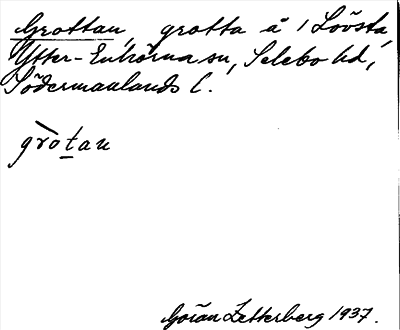 Grottan, grotta å 1 Lövsta,
Ytter-Enhörna sn, Selebo hd,
Södermanlands l.
gròt̲an
Göran Zetterberg 1937.